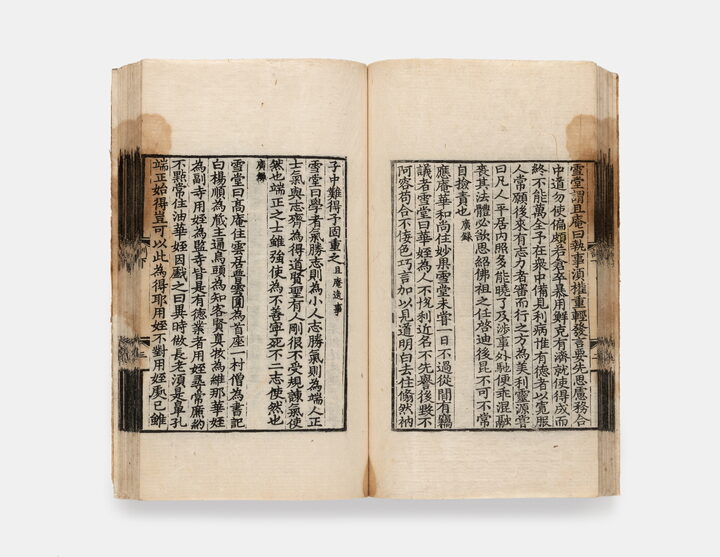 雪堂謂且庵曰執事湏權重輕發言要先思慮務合
中道勿使偏頗若倉卒暴用鮮克有濟就使得成而
終不能萬全予在衆中備見利病惟有德者以寬服
人常願後來有志力者審而行之方為美利靈源嘗
曰凡人平居内照多能曉了及涉事外馳便乖混融
喪其法體必欲思紹佛祖之任啓迪後昆不可不常
自撿責也 廣錄
應庵華和尚住妙果雪堂未嘗一日不過從間有竊
議者雪堂曰華姪為人不恱利近名不先譽後毀不
阿容苟合不佞色巧言加以見道明白去住翛然衲
子中難得予固重之 且庵逸事
雪堂曰學者氣勝志則為小人志勝氣則為端人正
士氣與志齊為得道賢聖有人剛很不受規諫氣使
然也端正之士雖強使為不善寧死不二志使然也
廣錄
雪堂曰高庵住雲居普雲圓為首座一村僧為書記
白楊順為藏主通烏頭為知客賢真牧為維那華姪
為副寺用姪為監寺皆是有德業者用姪尋常廉約
不點常住油華姪因戲之曰異時做長老湏是鼻孔
端正始得豈可以此為得耶用姪不對用姪處己雖